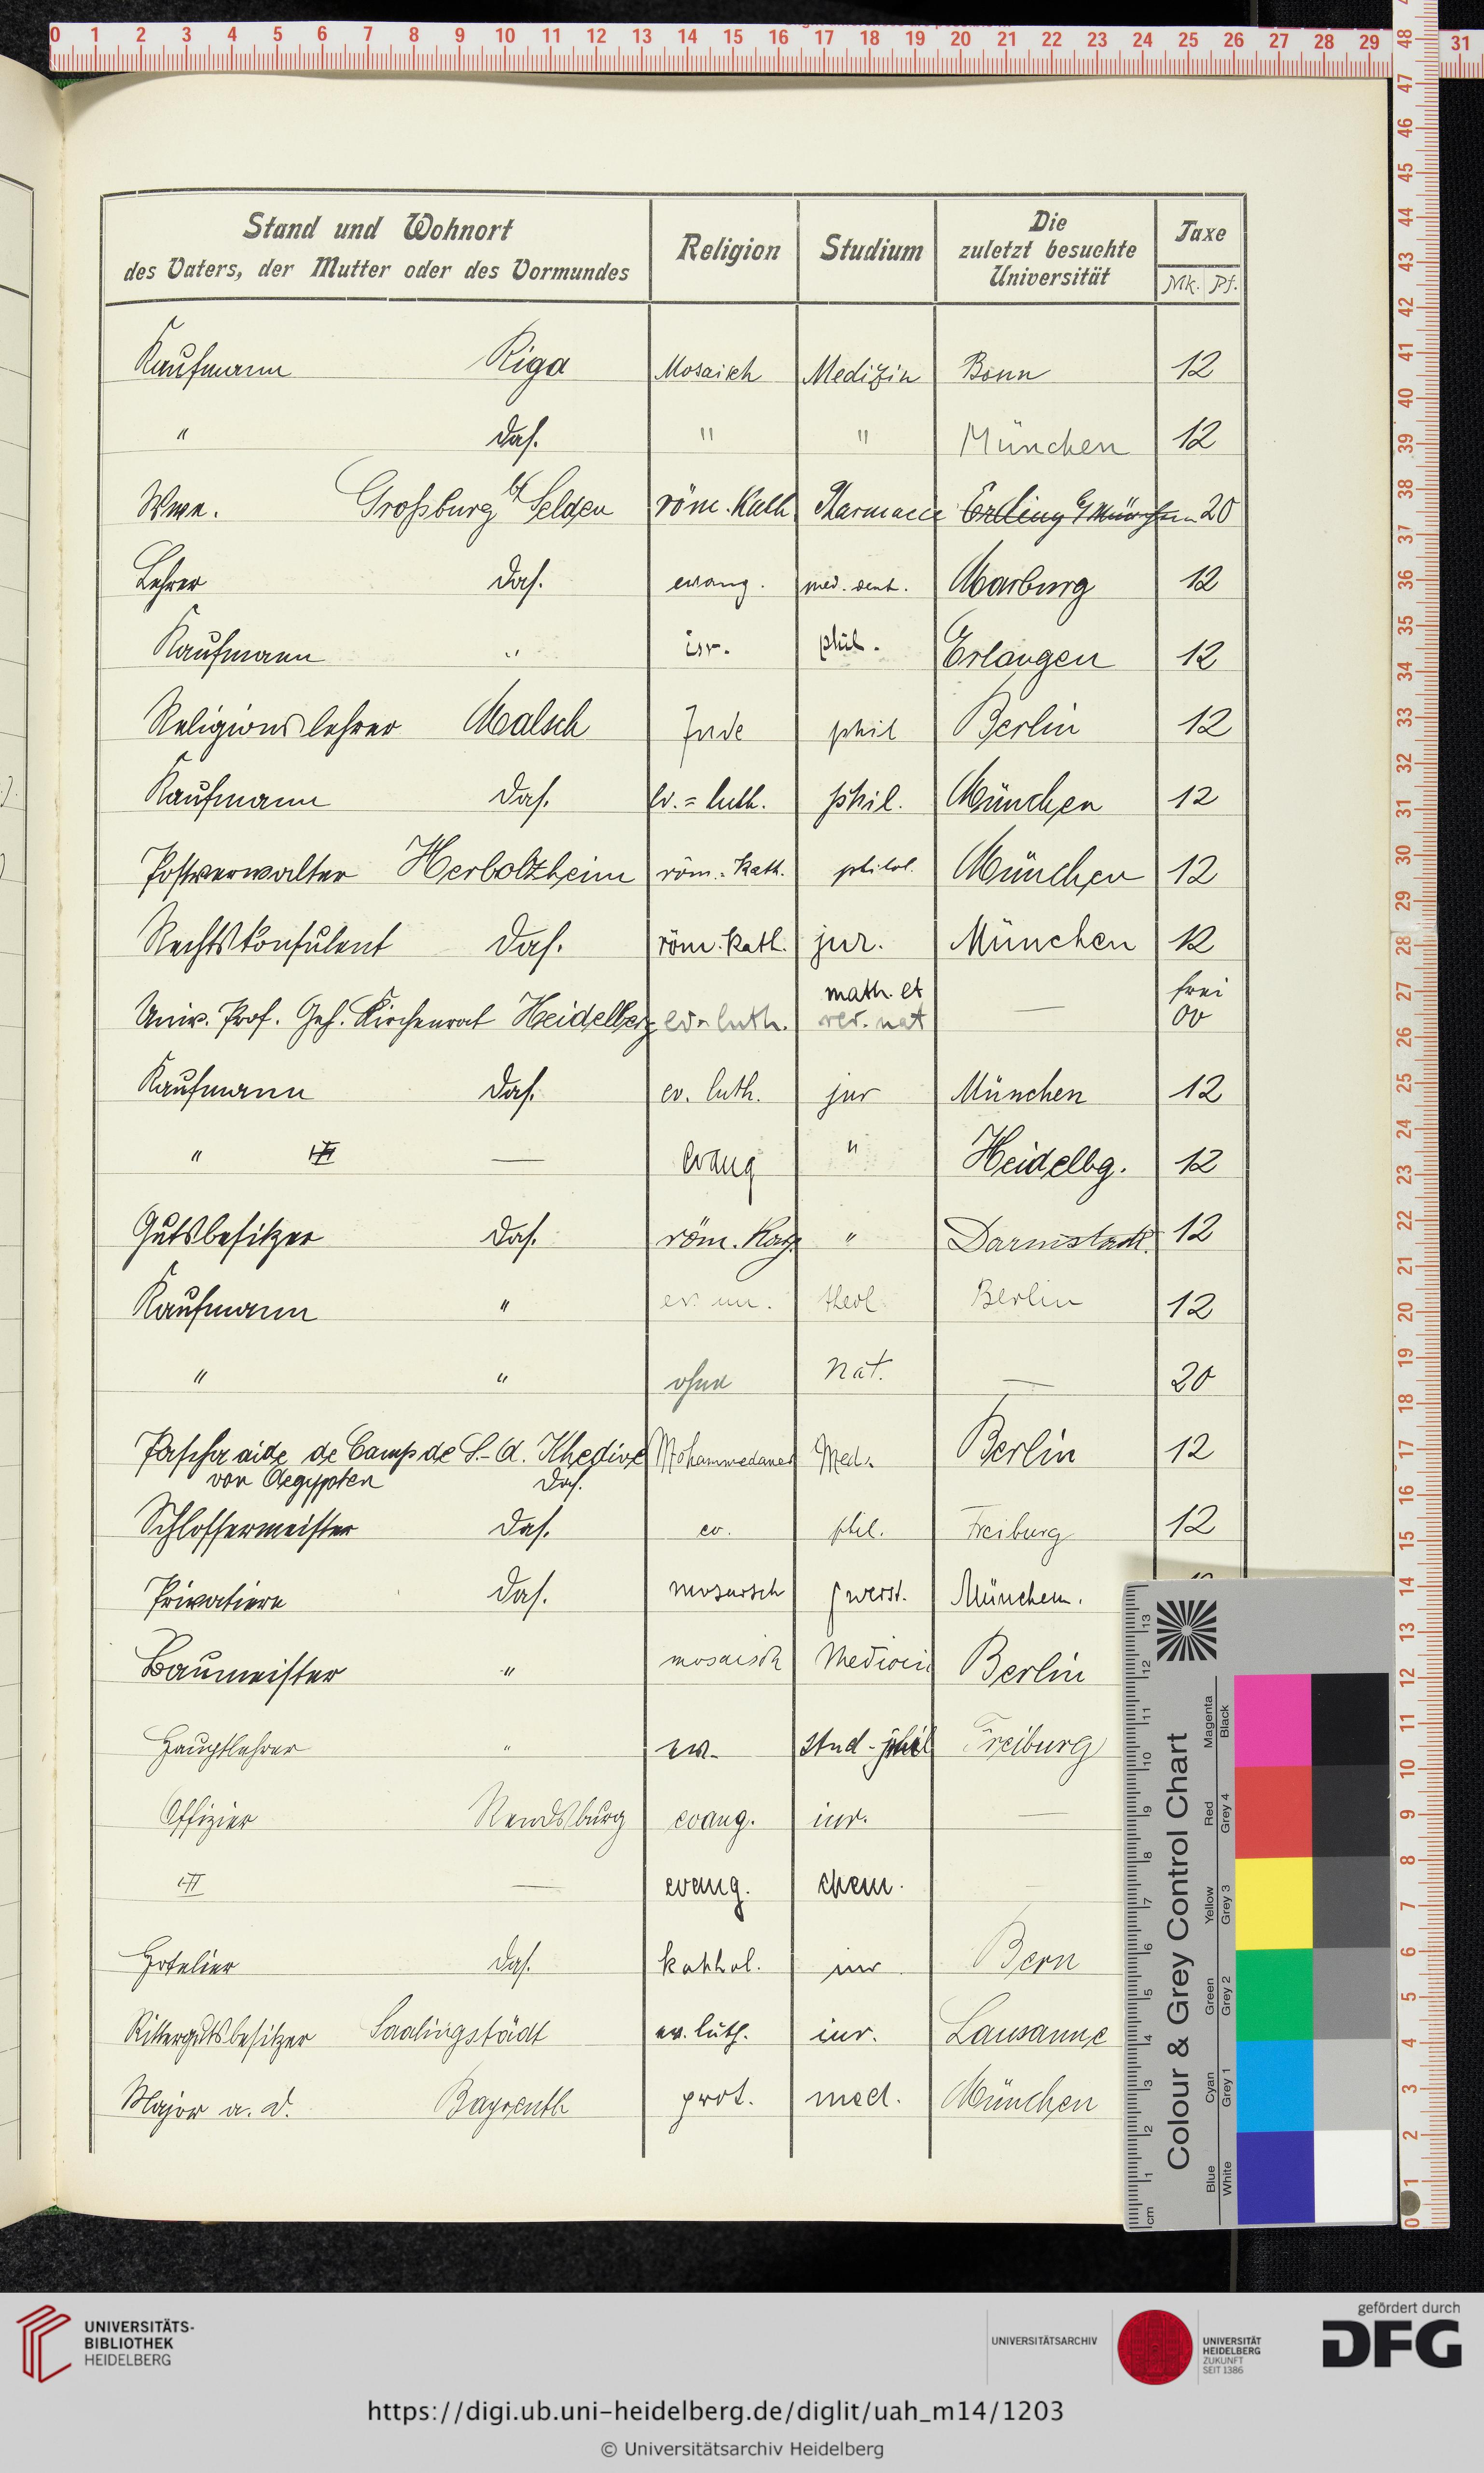 Stand und Wohnort
des Vaters, der Mutter oder des Vormundes
Religion
Studium
Die
zuletzt besuchte
Universität
Taxe
Mk. Pf.
Kaufmann Riga Mosaisch Medizin Bonn 12
" das. " " München 12
Wwe. Großburg röm. Kath. Pharmacie 20
Lehrer das. evang. med. dent. Marburg 12
Kaufmann " isr. phil. Erlangen 12
Religionslehrer Malsch Jude phil Berlin 12
Kaufmann das. ev.=luth. phil. München 12
Postverwalter Herbolzheim röm.-Kath. philol. München 12
Rechtskonsulent das. röm. Kath. jur. München 12
Univ. Prof. Geh. Kirchenrat Heidelberg ev-luth. math. et rer. nat — frei 00
Kaufmann das. ev. luth. jur München 12
" — evang " Heidelbg. 12
Gutsbesitzer das. röm. " Darmstadt. 12
Kaufmann " ev. un. theol Berlin 12
" " ohne Nat. — 20
Pascha aide de Camp de S. A. Khedive Mohammedaner Med. Berlin 12
von Aegypten das.
Schlossermeister das. ev. phil. Freiburg 12
Privatiere das. mosaisch München.
Baumeister " mosaisch Medicin Berlin
Hauptlehrer " ev. stud. phil Freiburg
Offizier Rendsburg evang. iur. —
— evang. chem. —
Hotelier das. kathol. iur Bern
Rittergutsbesitzer Saalingstädt ev. luth. iur. Lausanne
Major a. D. Bayreuth prot. med. München
Colour & Grey Control Chart
Blue Cyan Green Yellow Red Magenta
White Grey 1 Grey 2 Grey 3 Grey 4 Black
cm 1 2 3 4 5 6 7 8 9 10 11 12 13
UNIVERSITÄTS-
BIBLIOTHEK
HEIDELBERG
UNIVERSITÄTSARCHIV
UNIVERSITÄT
HEIDELBERG
ZUKUNFT
SEIT 1386
gefördert durch
DFG
https://digi.ub.uni-heidelberg.de/diglit/uah_m14/1203
© Universitätsarchiv Heidelberg